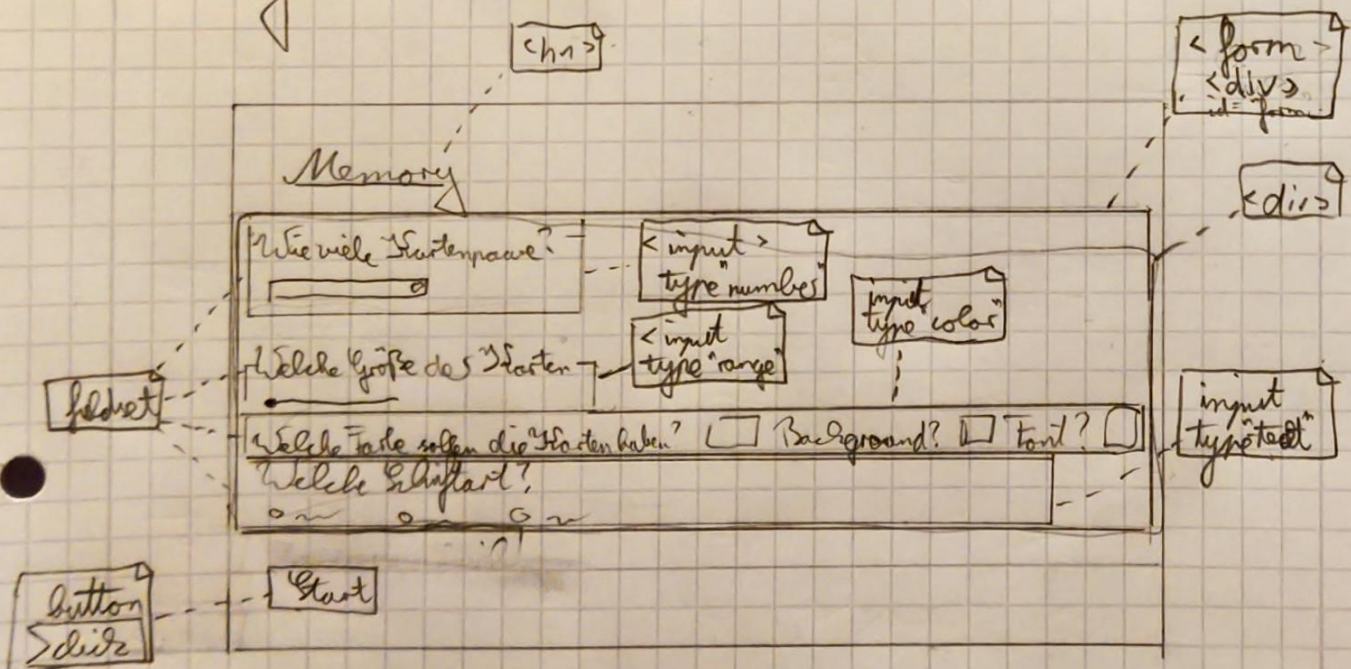 <h1>
< form >
<div>
id="form
Memory
<div>
Wie viele Kartenpaare?
<input>
type"number"
input
type"color"
Welche Größe das Karten
<input
type"range"
fieldset
input
type"text"
Welche Farbe sollen die Karten haben? Background? Font?
Welche Schriftart?
button
>click
Start